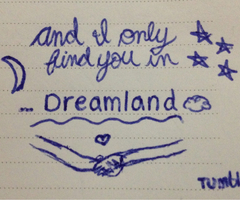 and I only
find you in
... Dreamland
Tumbl